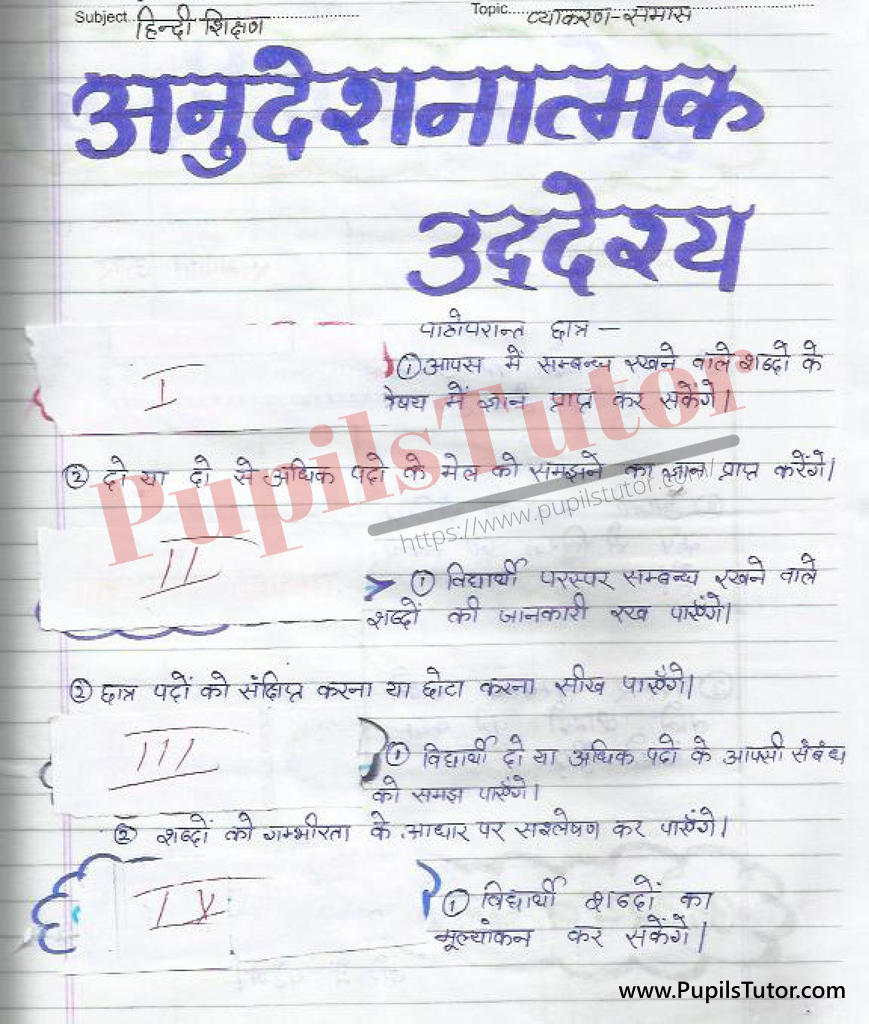 Subject...हिन्दी शिक्षण
Topic...व्याकरण-समास
अनुदेशनात्मक
उद्देश्य
पाठोपरान्त छात्र —
I
① आपस में सम्बन्ध रखने वाले शब्दों के
विषय में ज्ञान प्राप्त कर सकेंगे।
② दो या दो से अधिक पदो के मेल को समझने का ज्ञान प्राप्त करेंगे।
PupilsTutor
https://www.pupilstutor.com
II
① विद्यार्थी परस्पर सम्बन्ध रखने वाले
शब्दों की जानकारी रख पाएँगे।
② छात्र पदों को संक्षिप्त करना या छोटा करना सीख पाएँगे।
III
① विद्यार्थी दो या अधिक पदो के आपसी संबंध
को समझ पाएँगे।
② शब्दों को गम्भीरता के आधार पर सश्लेषण कर पाएँगे।
IV
① विद्यार्थी शब्दों का
मूल्यांकन कर सकेंगे।
www.PupilsTutor.com